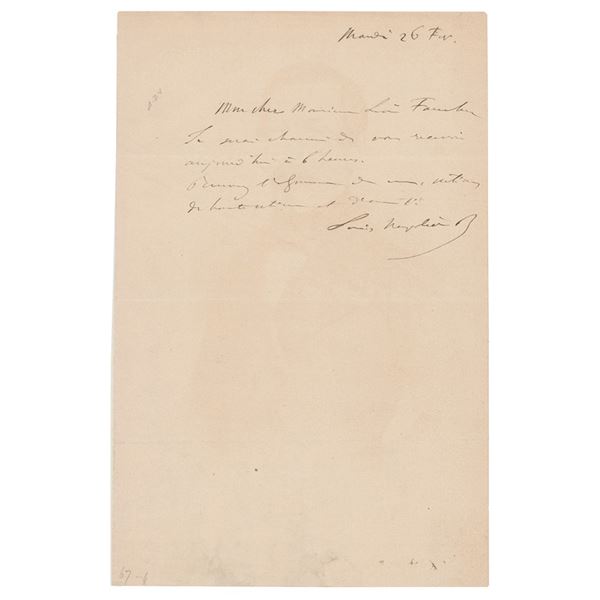 Mardi 26 Fev.
Mon cher Monsieur Léon Faucher
Je serai charmé de vous recevoir
aujourd'hui à 6 heures.
Recevez l'assurance de mes sentiments
de haute estime et d'amitié
Louis Napoléon B
67